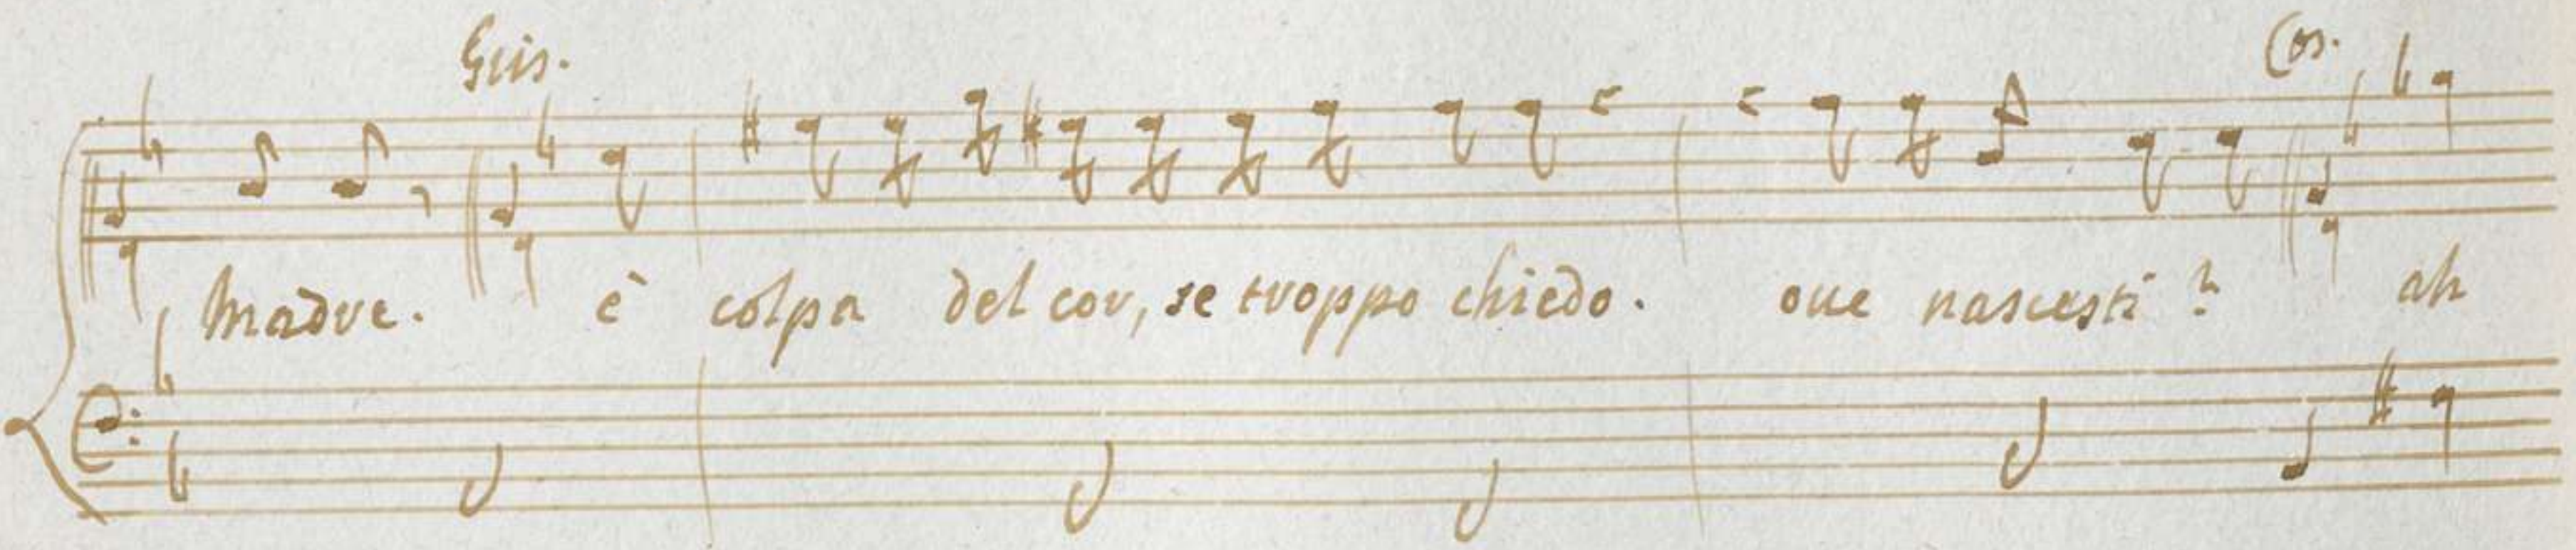 Gris. Cos.
Madre. è colpa del cor, se troppo chiedo. oue nascesti? ah